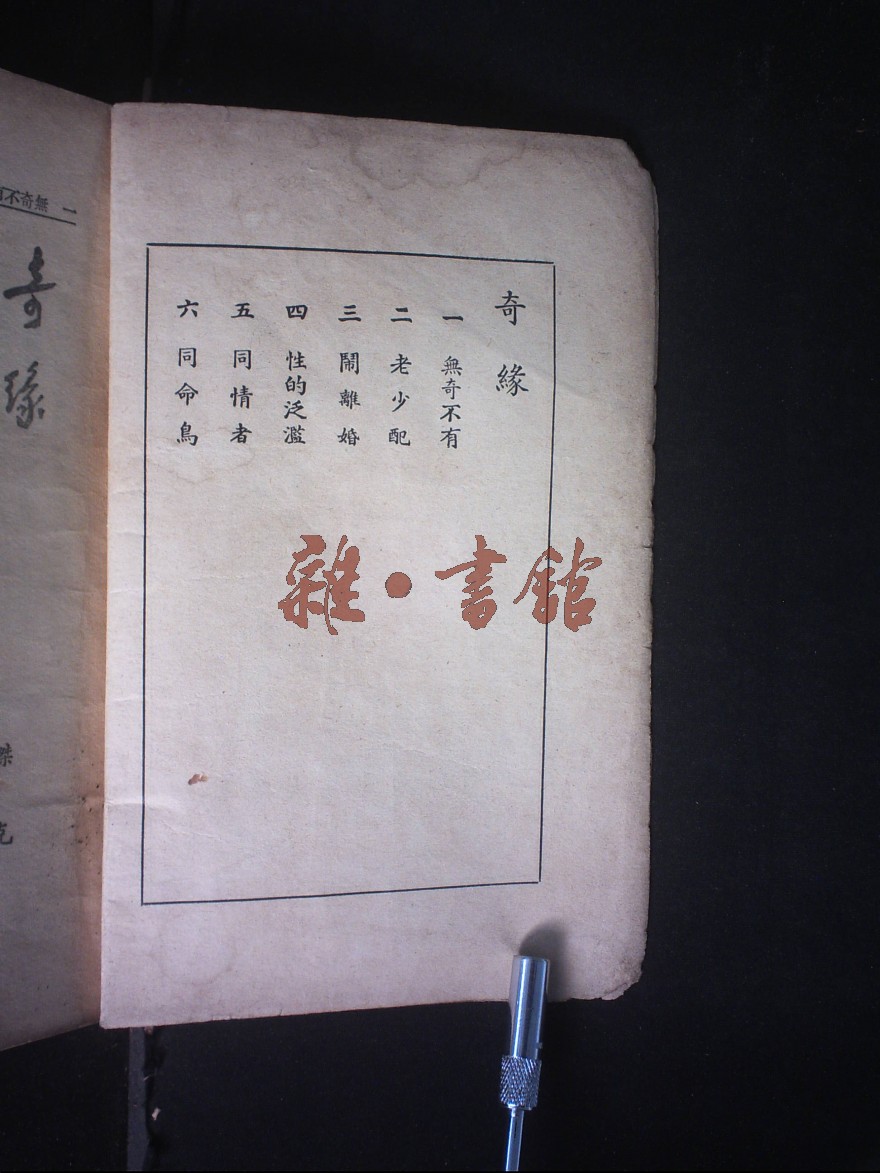 奇緣
一 無奇不有
二 老少配
三 鬧離婚
四 性的泛濫
五 同情者
六 同命鳥
雜·書館
一 無奇不
奇緣